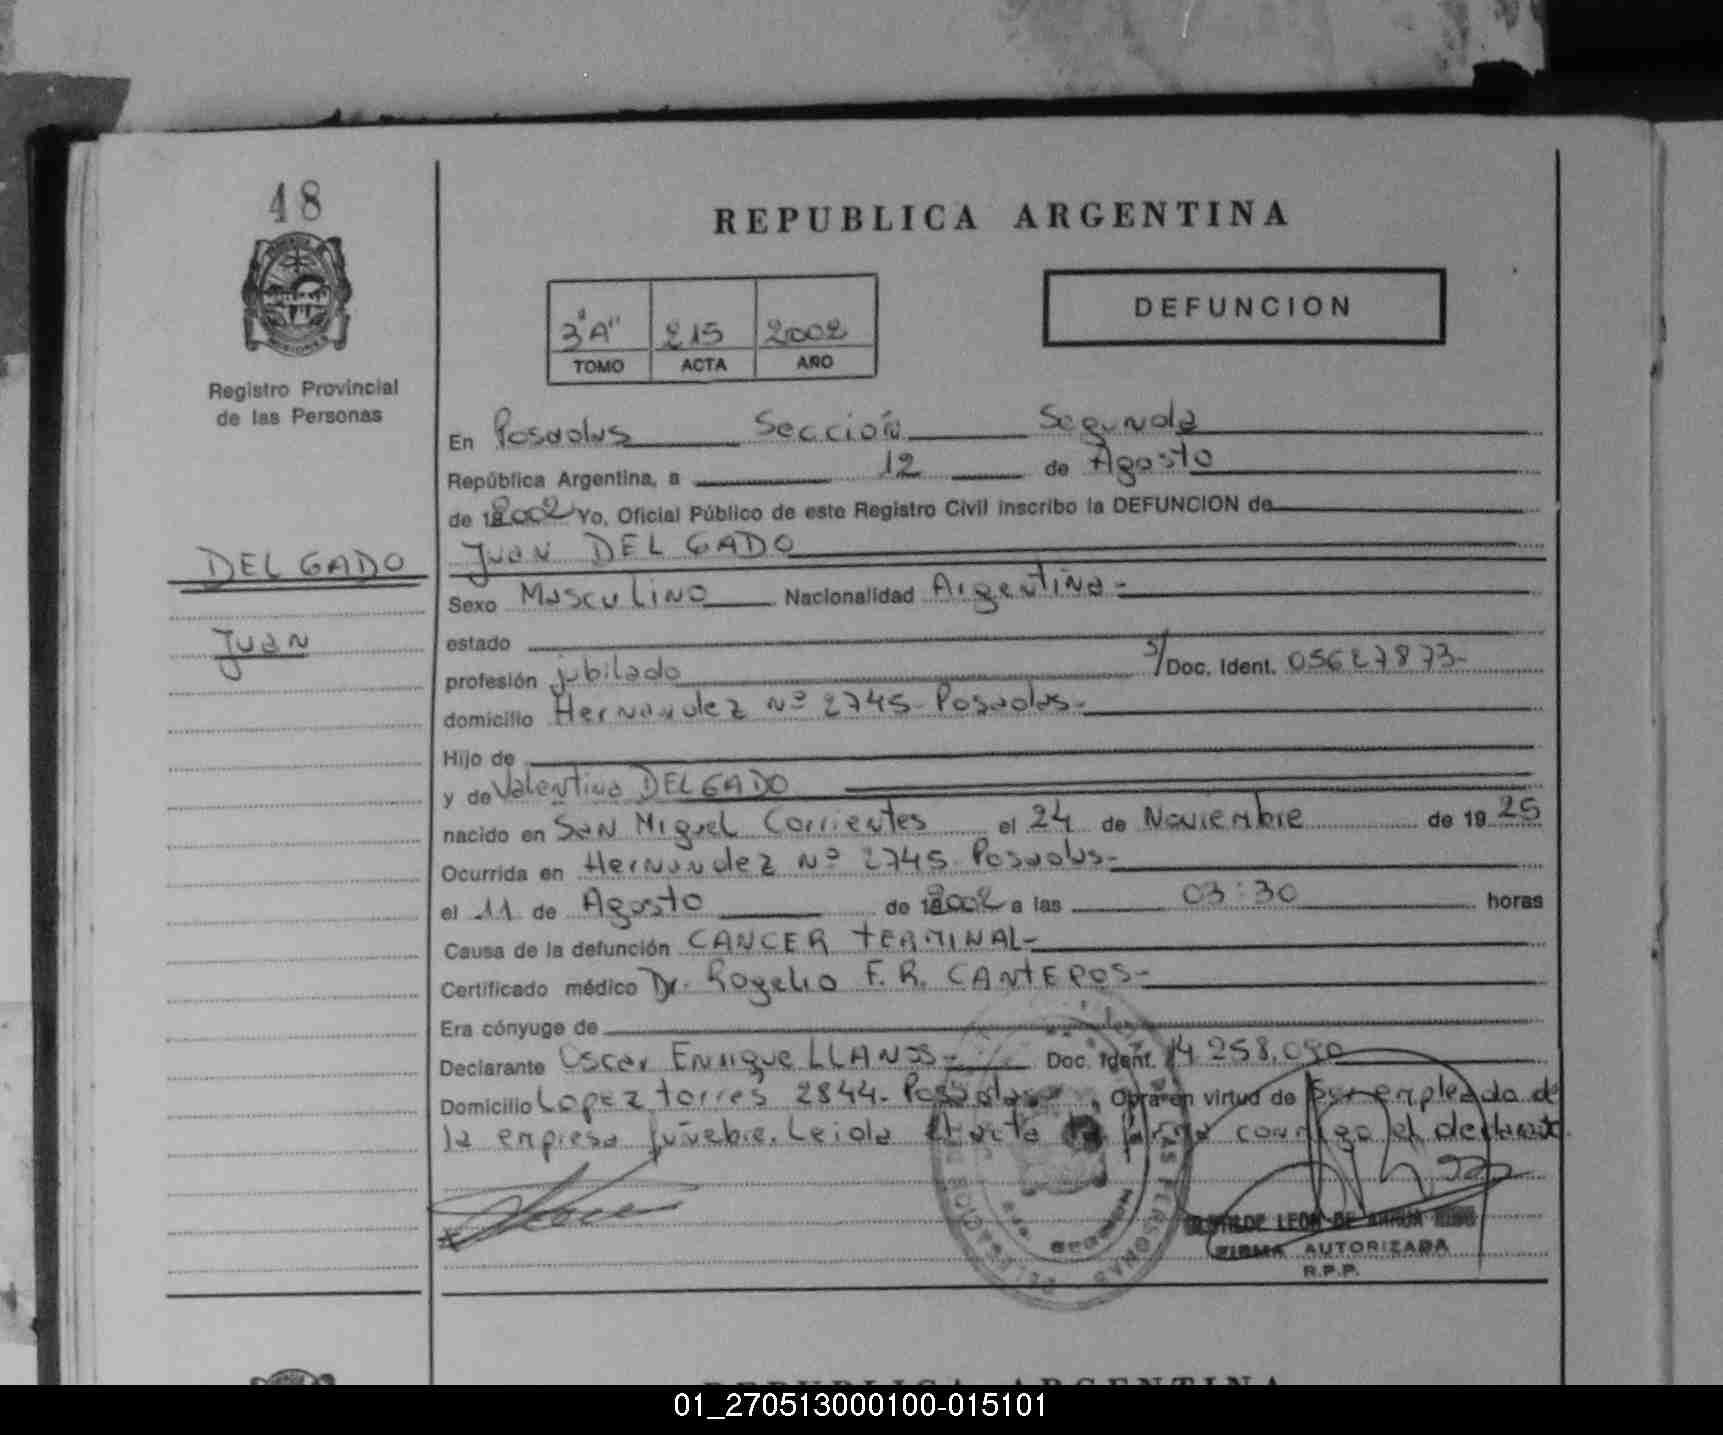 48
REPUBLICA ARGENTINA
DEFUNCION
3ª "A" 215 2002
TOMO ACTA AÑO
Registro Provincial
de las Personas
En Posadas Sección Segunda
República Argentina, a 12 de Agosto
de 2002 Yo, Oficial Público de este Registro Civil inscribo la DEFUNCION de
DELGADO
Juan DELGADO
Sexo Masculino Nacionalidad Argentina-
Juan
estado
profesión jubilado s/Doc. Ident. 05627873-
domicilio Hernandez Nº 2745- Posadas-
Hijo de
y de Valentina DELGADO
nacido en San Miguel Corrientes el 24 de Noviembre de 1925
Ocurrida en Hernandez Nº 2745- Posadas-
el 11 de Agosto de 2002 a las 03:30 horas
Causa de la defunción CANCER TERMINAL-
Certificado médico Dr. Rogelio F. R. CANTEROS-
Era cónyuge de
Declarante Oscar Enrique LLANOS- Doc. Ident. 14.258.090
Domicilio Lopez torres 2844- Posadas, Obra en virtud de Ser empleado de
la empresa fúnebre. Leida el acta firma conmigo el declarante.
LEON DE
FIRMA AUTORIZADA
R.P.P.
REPUBLICA ARGENTINA
01_270513000100-015101